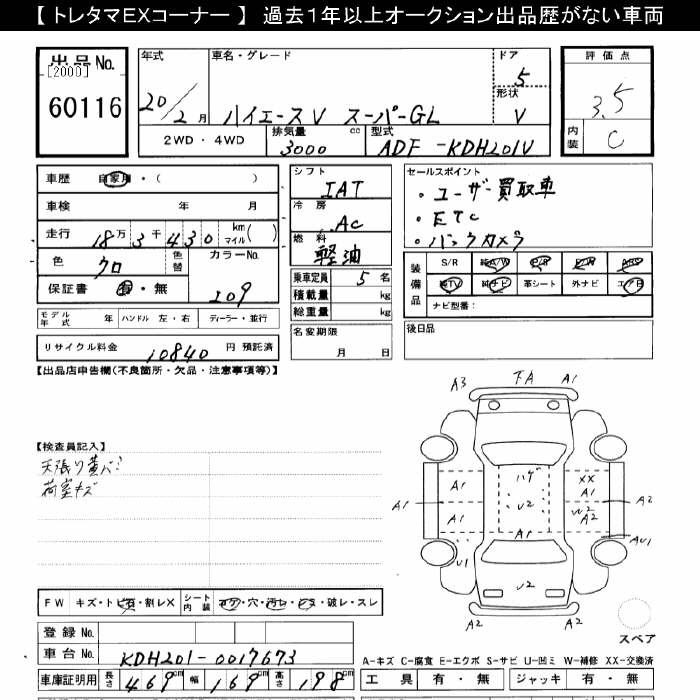 【 トレタマEXコーナー 】 過去1年以上オークション出品歴がない車両
出品No.
[2000]
60116
年式
20/2月
車名・グレード
ハイエースV スーパーGL
ドア
5
形状
V
評価点
3.5
内装
C
2WD・4WD
排気量 cc
3000
型式
ADF-KDH201V
車歴 自家用・( )
車検 年 月
走行 18万3千430 km マイル( )
色 クロ
色替
カラーNo.
209
保証書 有・無
シフト
IAT
冷房
AC
燃料
軽油
乗車定員 5名
積載量 kg
総重量 kg
名変期限
月 日
セールスポイント
・ユーザー買取車
・ETC
・バックカメラ
装備品
S/R 純A/W P/S P/W ABS
純TV 純ナビ 革シート 外ナビ エアB
ナビ型番:
後日品
モデル年式 年 ハンドル 左・右 ディーラー・並行
リサイクル料金 10840 円 預託済
【出品店申告欄(不良箇所・欠品・注意事項等)】
【検査員記入】
天張り黄バミ
荷室キズ
A3 下A A1
ハゲ
A1 U2 XX A1
A1 A1 W2 A2 A2
A1 A1 AU1
U1 U2
A2 A2
スペア
FW キズ・トビ石・割レX シート内装 コゲ・穴・汚レ・シミ・破レ・スレ
登録No.
車台No. KDH201-0017673
車庫証明用 長さ 469cm 幅 169cm 高さ 198cm
A-キズ C-腐食 E-エクボ S-サビ U-凹ミ W-補修 XX-交換済
工具 有・無 ジャッキ 有・無